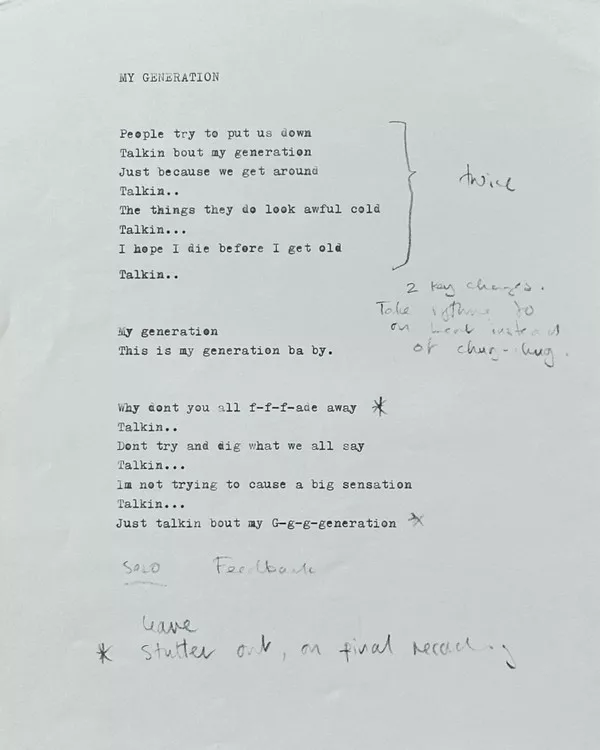 MY GENERATION
People try to put us down
Talkin bout my generation
Just because we get around
Talkin..
The things they do look awful cold
Talkin...
I hope I die before I get old
Talkin..
twice
2 key changes.
Take rythmn to
on beat instead
of chug-chug.
My generation
This is my generation ba by.
Why dont you all f-f-f-ade away *
Talkin..
Dont try and dig what we all say
Talkin...
Im not trying to cause a big sensation
Talkin...
Just talkin bout my G-g-g-generation *
SOLO Feedback
leave
* stutter out, on final recording